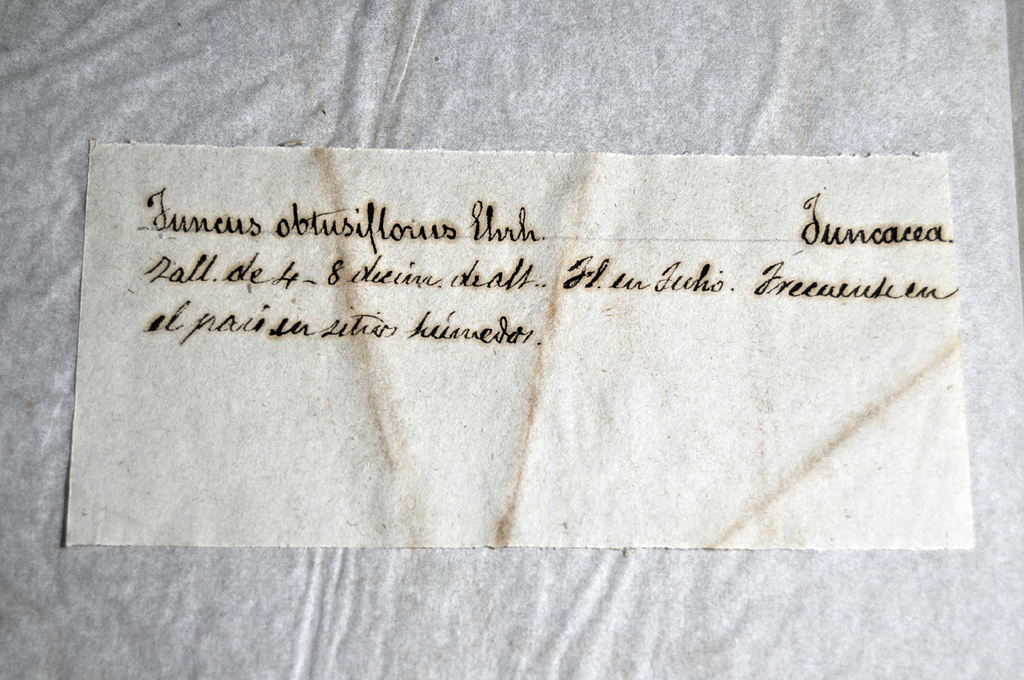 Juncus obtusiflorus Ehrh. Juncacea.
Tall. de 4-8 decim. de alt. Fl. en Julio. Frecuente en
el pais en sitios húmedos.